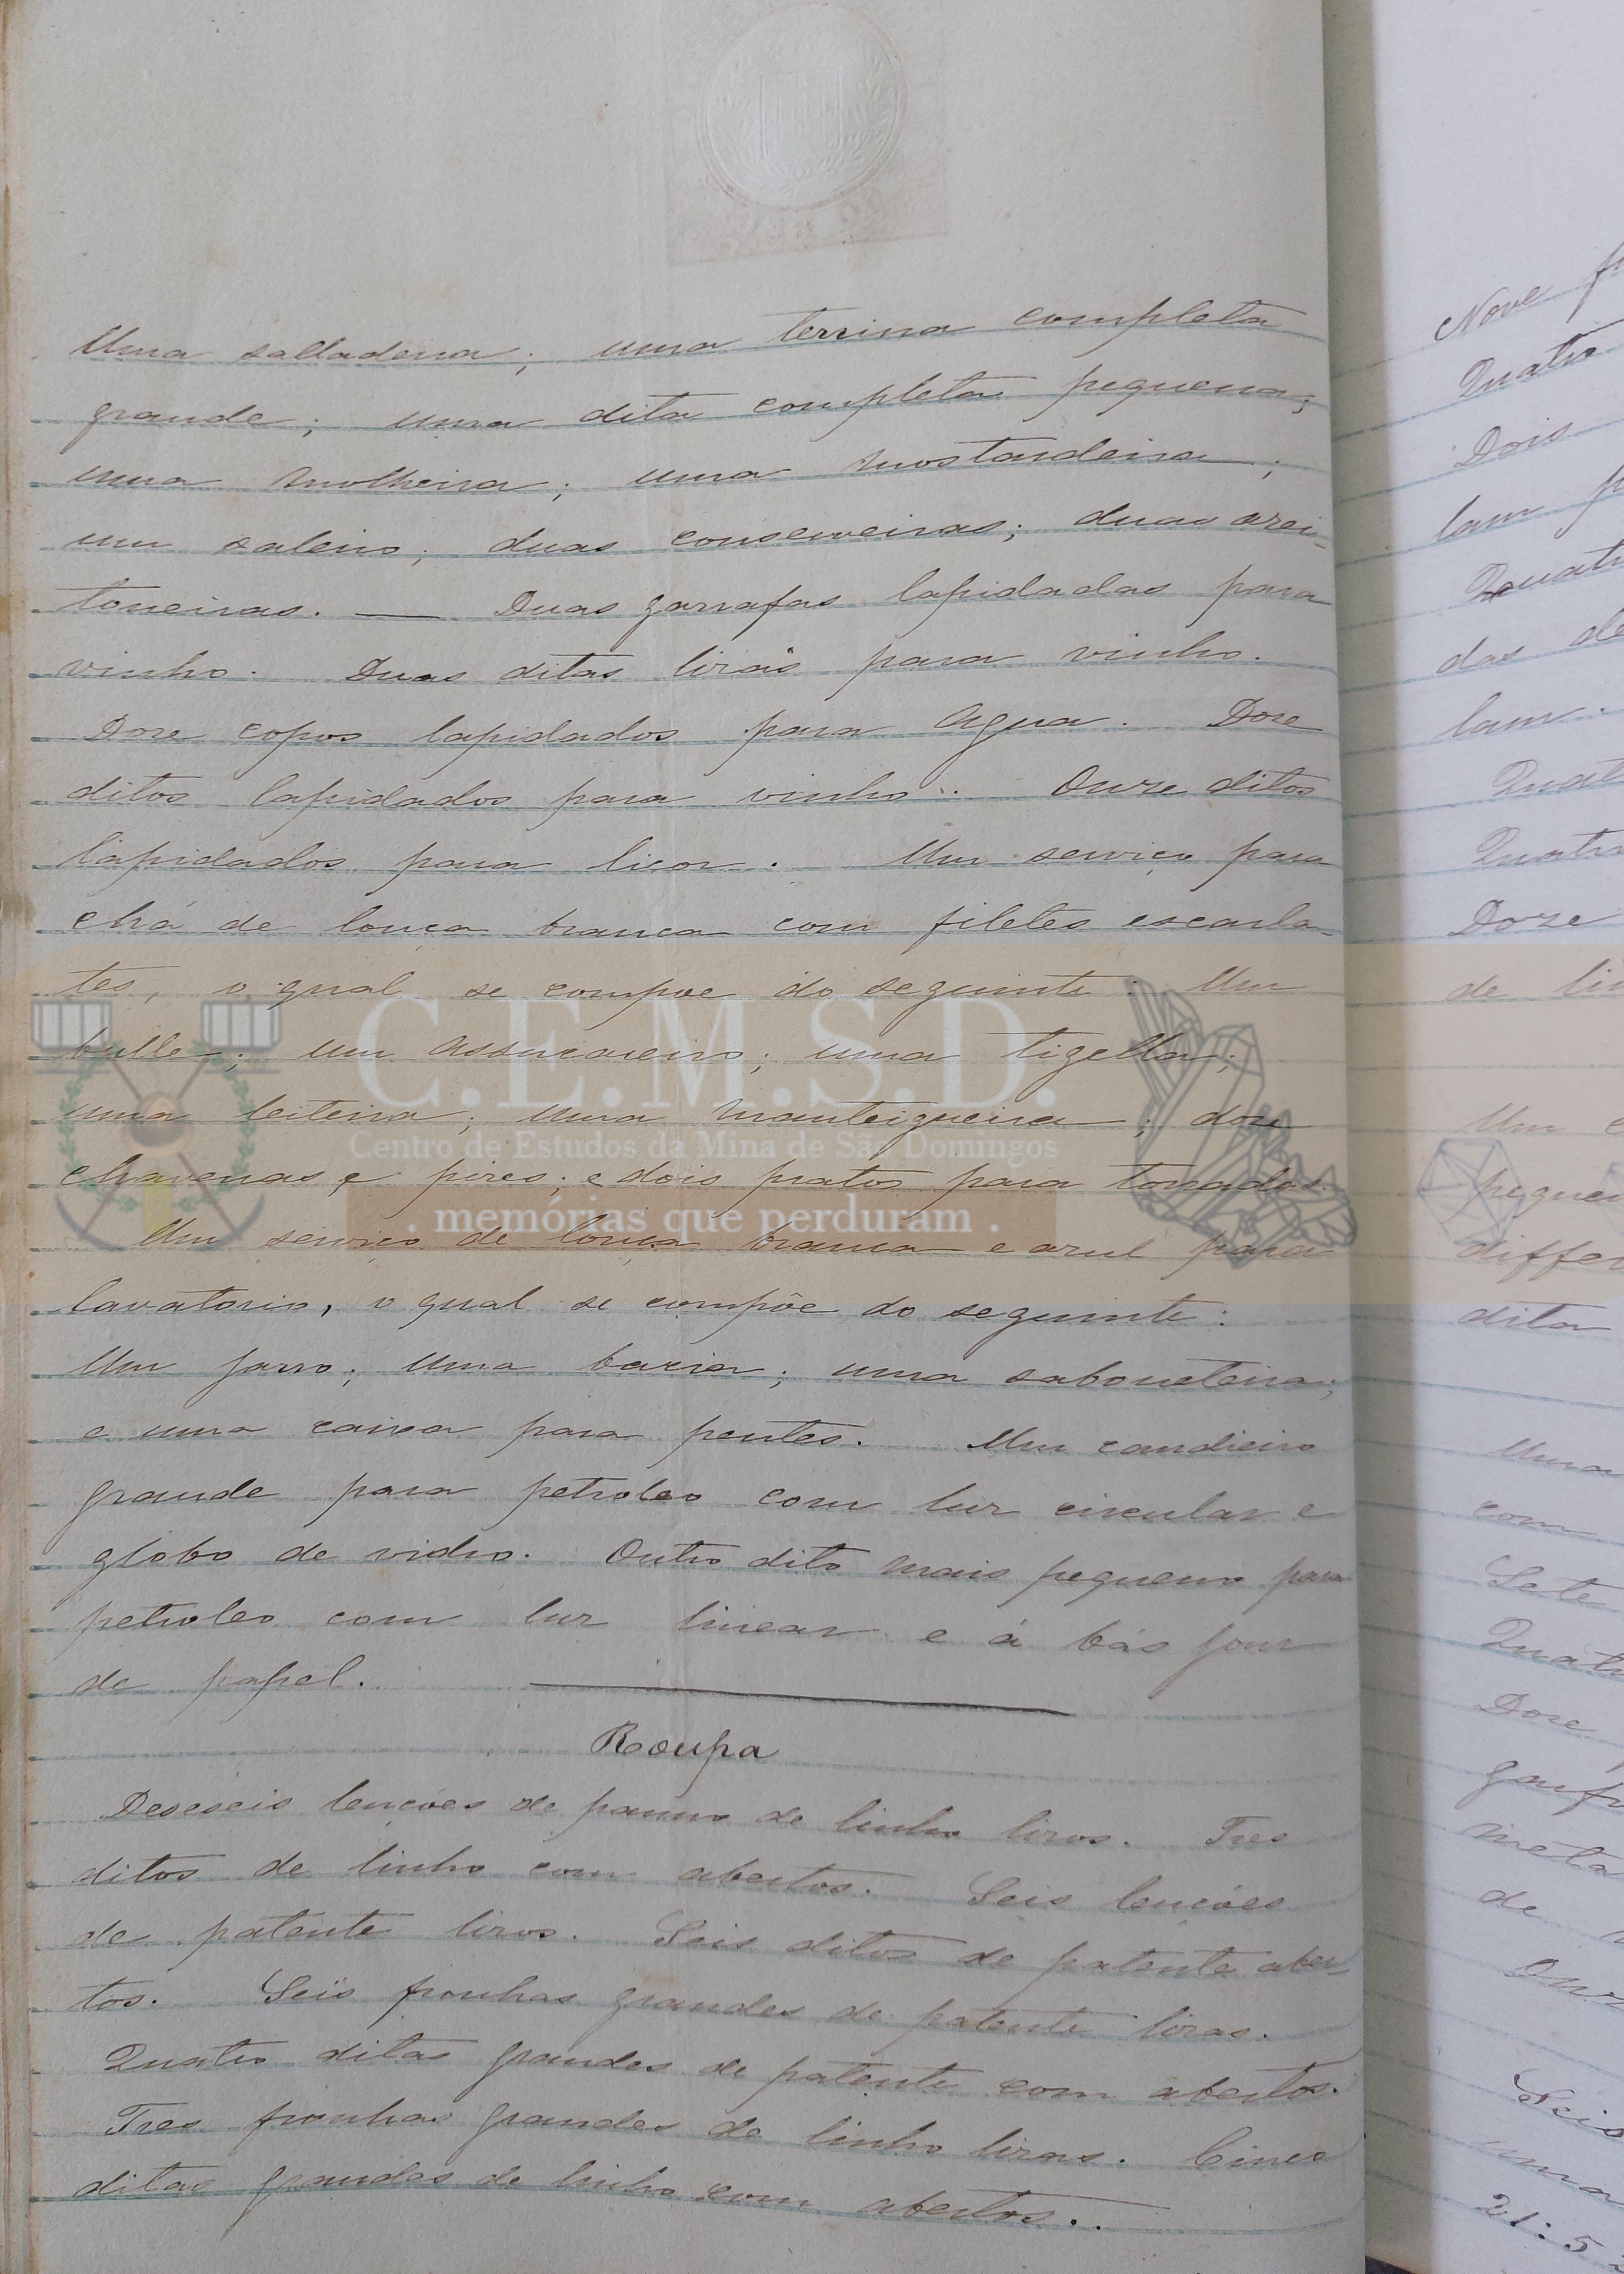 Uma salladeira; uma terrina completa
grande; uma dita completa pequena;
uma molheira; uma mostardeira;
um saleiro; duas conserveiras; duas azei-
toneiras. — Duas garrafas lapidadas para
vinho. Duas ditas lizas para vinho.
Doze copos lapidados para agua. Doze
ditos lapidados para vinho. Onze ditos
lapidados para licor. Um serviço para
chá de louça branca com filetes escarla-
tes, o qual se compoe do seguinte: Um
bulle; um assucareiro; uma tigella;
uma leiteira; uma manteigueira; doze
chavenas e pires; e dois pratos para torradas.
Um serviço de louça branca e azul para
lavatorio, o qual se compõe do seguinte:
Um jarro; uma bacia; uma saboneteira;
e uma caixa para pentes. Um candieiro
grande para petroleo com luz circular e
globo de vidro. Outro dito mais pequeno para
petroleo com luz linear e á bás jour
de papel.
Roupa
Deseseis lenções de panno de linho lizos. Tres
ditos de linho com abertos. Seis lenções
de patente lizos. Seis ditos de patente aber-
tos. Seis fronhas grandes de patente lizas.
Quatro ditas grandes de patente com abertos.
Tres fronhas grandes de linho lizas. Cinco
ditas grandes de linho com abertos..
C.E.M.S.D.
Centro de Estudos da Mina de São Domingos
. memórias que perduram .
Nove
Quatro
Dois
lam
Quatr
das de
lam.
Quat
Quatro
Doze
de lin
Um
peque
differ
dita
Uma
com
Sete
Quat
Doze
de
Seis
uma